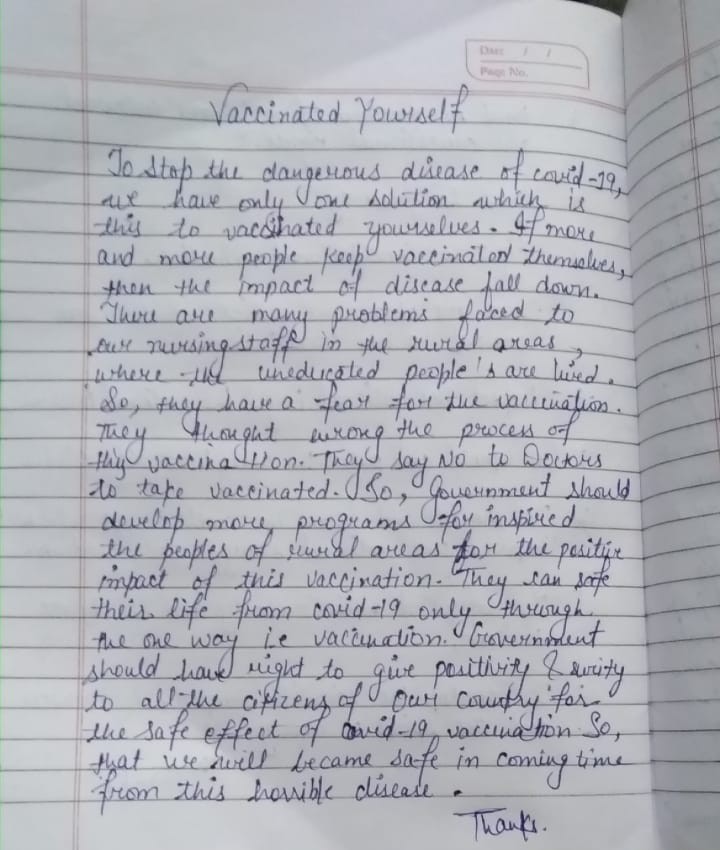 Date / /
Page No.
Vaccinated Yourself
To stop the dangerous disease of covid-19,
we have only one solution which is
this to vaccinated yourselves. If more
and more people keep vaccinated themselves,
then the impact of disease fall down.
There are many problems faced to
our nursing staff in the rural areas,
where the uneducated people's are lived.
So, they have a fear for the vaccination.
They thought wrong the process of
this vaccination. They say No to Doctors
to take vaccinated. So, Government should
develop more programs for inspired
the peoples of rural areas for the positive
impact of this vaccination. They can safe
their life from covid-19 only through
the one way i.e vaccination. Government
should have right to give positivity & surity
to all the citizens of our country for
the safe effect of covid-19 vaccination So,
that we will became safe in coming time
from this horrible disease.
Thanks.